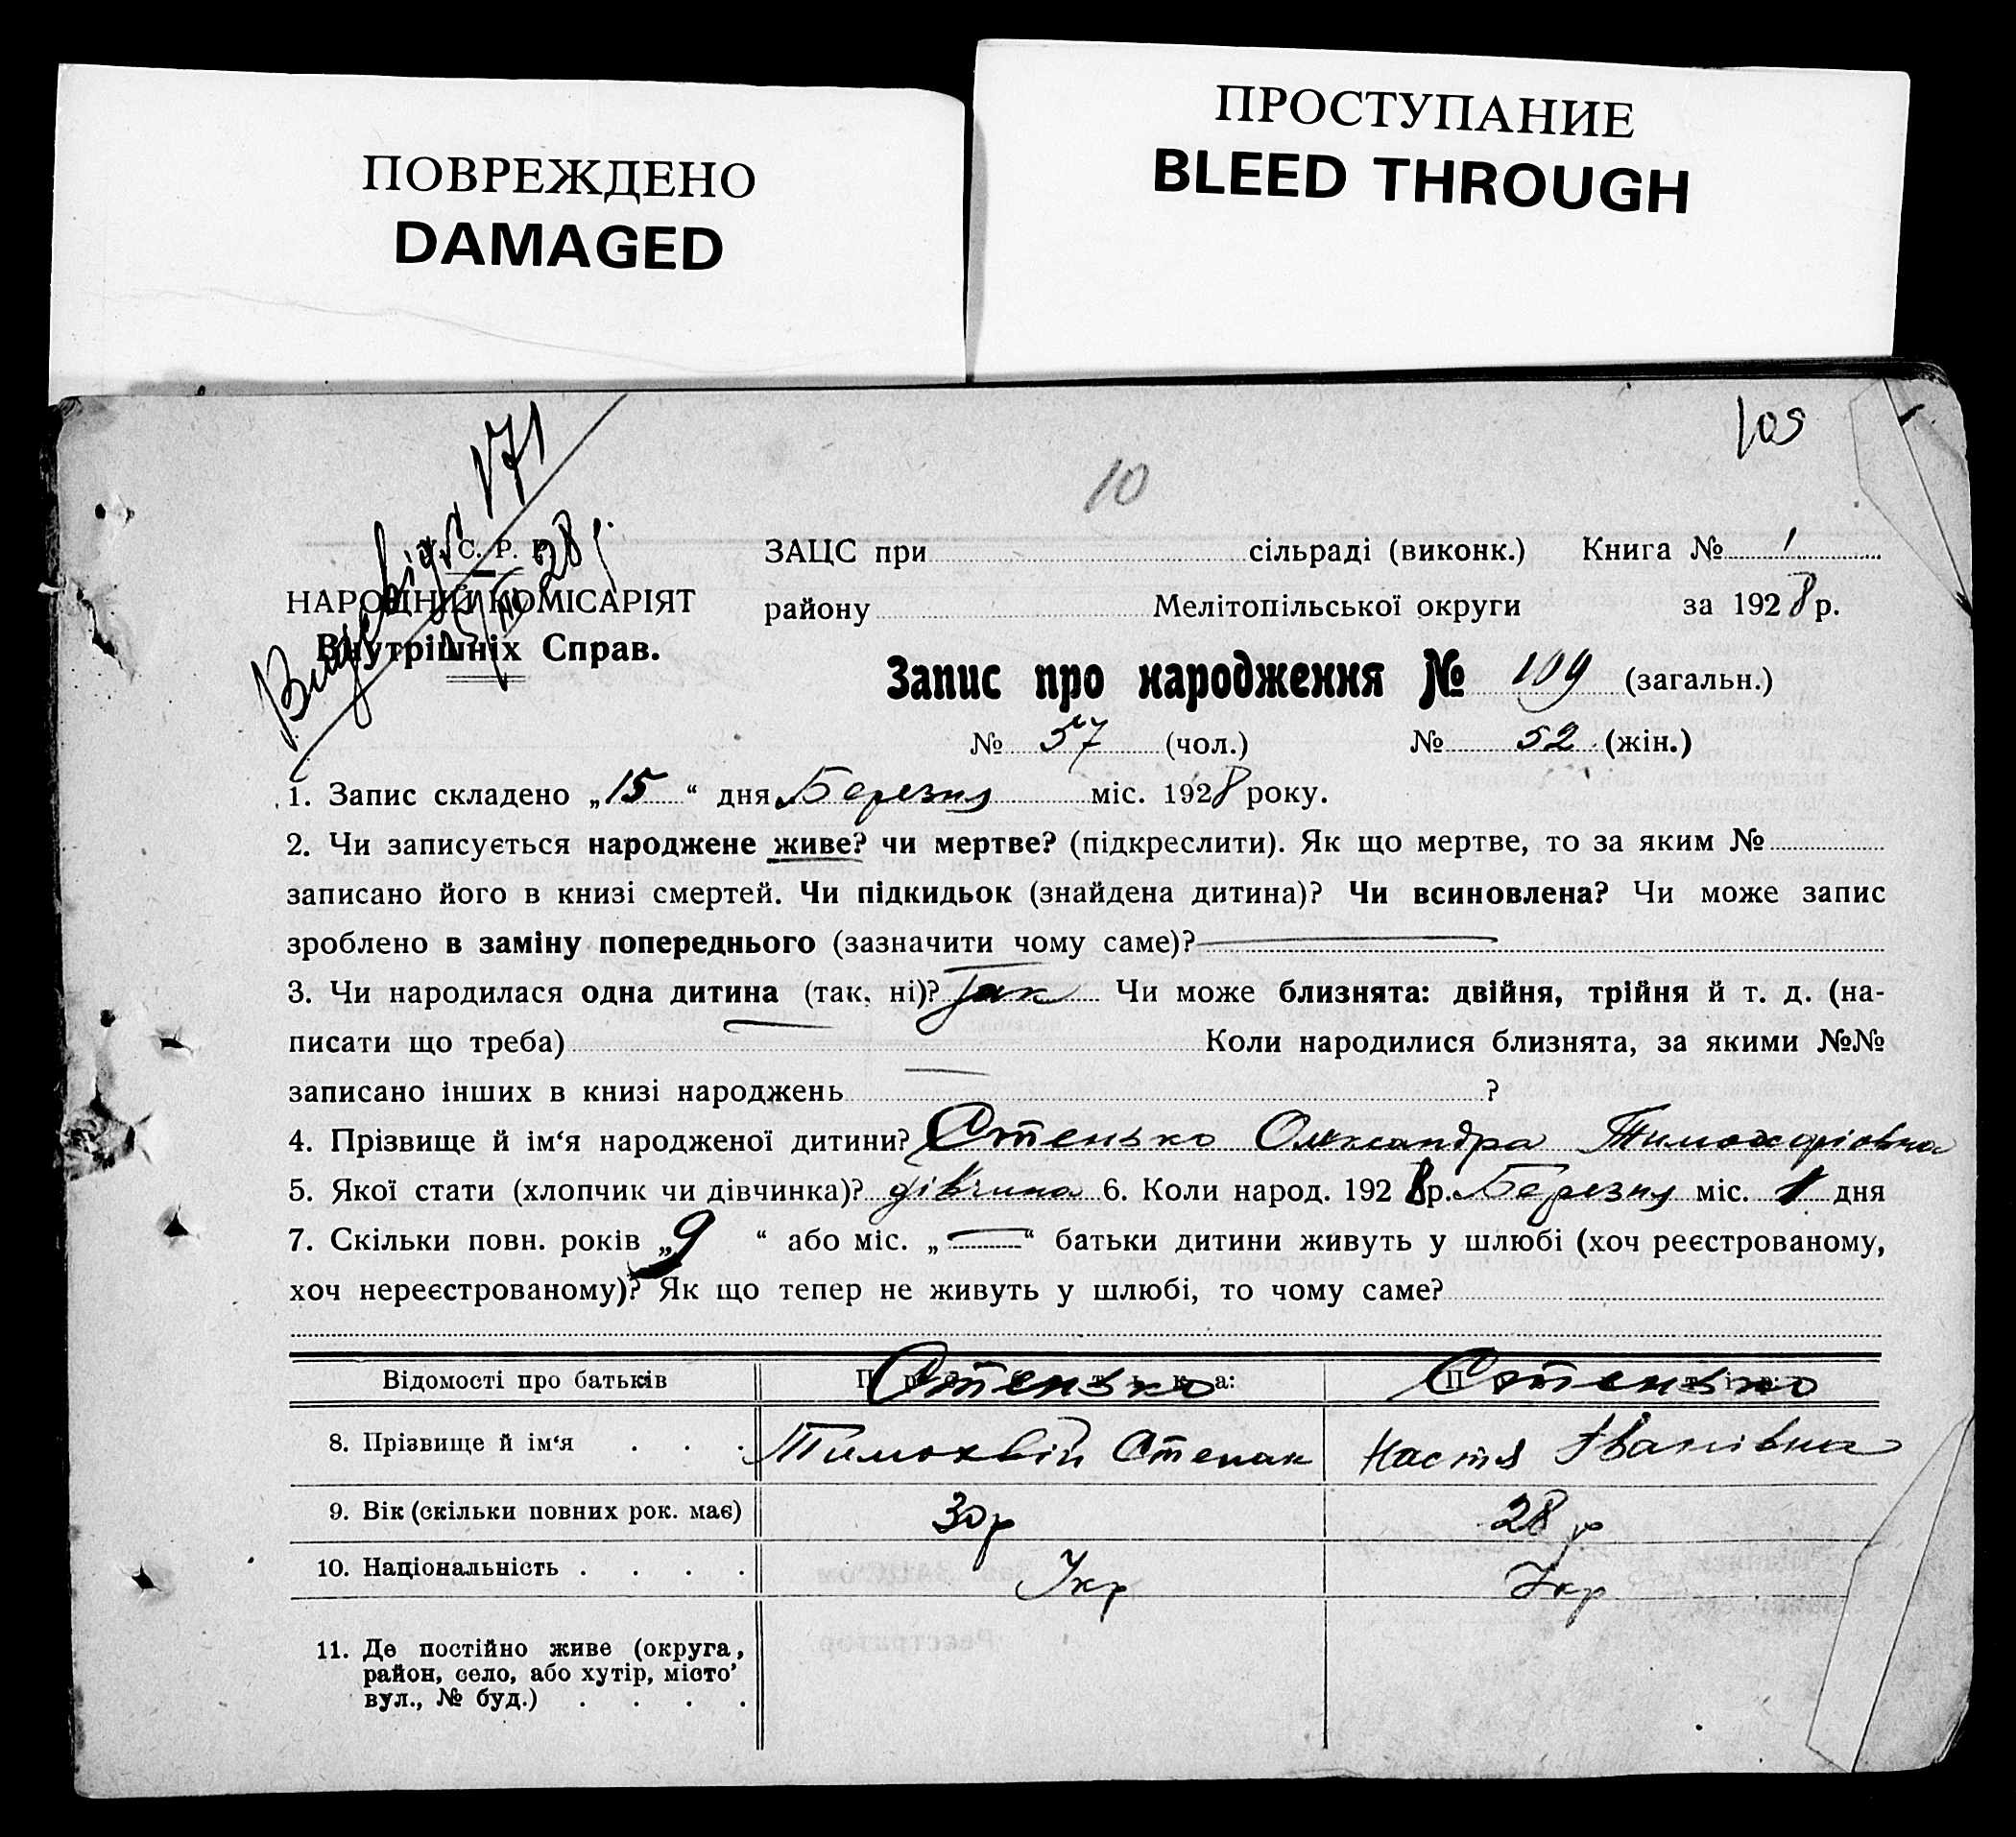 ПОВРЕЖДЕНО
DAMAGED
ПРОСТУПАНИЕ
BLEED THROUGH
109
10
171
С. Р. Р.
НАРОДНІЙ КОМІСАРІЯТ
Внутрішніх Справ.
ЗАЦС при сільраді (виконк.) Книга № 1
району Мелітопільської округи за 1928 р.
Запис про народження № 109 (загальн.)
№ 57 (чол.) № 52 (жін.)
1. Запис складено „15“ дня Березня міс. 1928 року.
2. Чи записується народжене живе? чи мертве? (підкреслити). Як що мертве, то за яким №
записано його в книзі смертей. Чи підкидьок (знайдена дитина)? Чи всиновлена? Чи може запис
зроблено в заміну попереднього (зазначити чому саме)?
3. Чи народилася одна дитина (так, ні)? Так Чи може близнята: двійня, трійня й т. д. (на-
писати що треба) Коли народилися близнята, за якими №№
записано інших в книзі народжень ?
4. Прізвище й ім‘я народженої дитини? Стенько Олександра
5. Якої стати (хлопчик чи дівчинка)? дівчина 6. Коли народ. 1928 р. Березня міс. 1 дня
7. Скільки повн. років „9“ або міс. „—“ батьки дитини живуть у шлюбі (хоч реєстрованому,
хоч нереєстрованому)? Як що тепер не живуть у шлюбі, то чому саме?
Відомості про батьків Стенько Стенько
8. Прізвище й ім‘я . . . Тимохвій Степан Настя Іванівна
9. Вік (скільки повних рок. має) 30 р 28 р
10. Національність . . . . Укр Укр
11. Де постійно живе (округа,
район, село, або хутір, місто’
вул., № буд.) . . . .